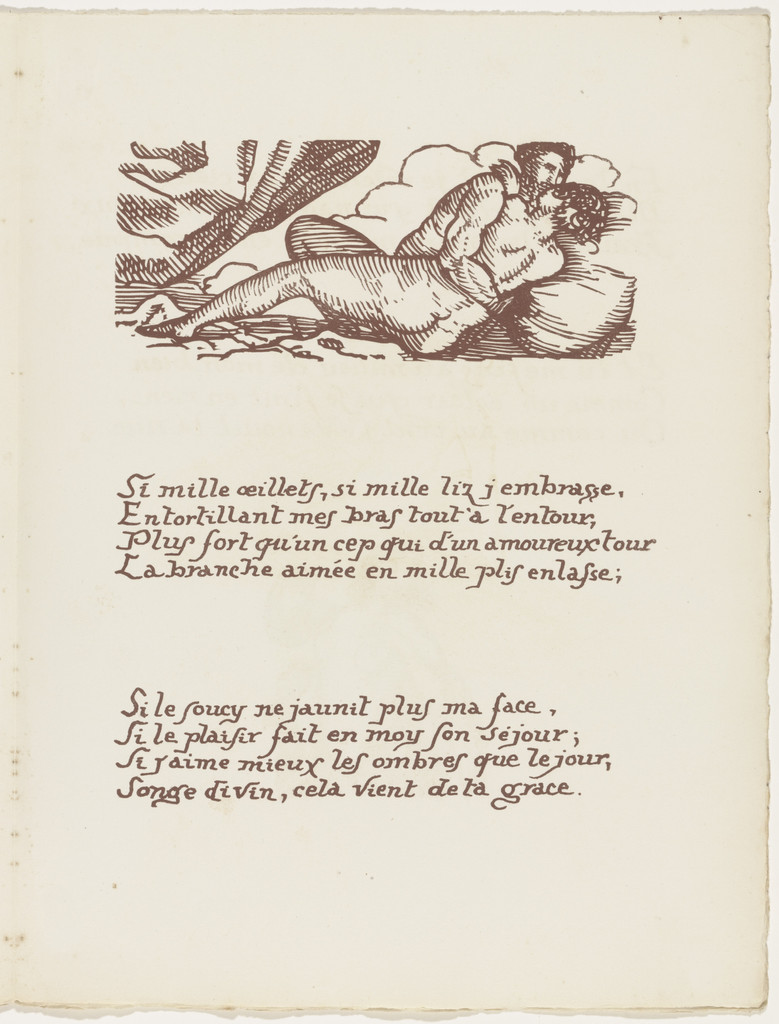 Si mille œillets, si mille liz j embrasse,
Entortillant mes bras tout à l'entour,
Plus fort qu'un cep qui d'un amoureux tour
La branche aimée en mille plis enlasse;
Si le soucy ne jaunit plus ma face,
Si le plaisir fait en moy son séjour;
Si j'aime mieux les ombres que le jour,
Songe divin, cela vient de ta grace.